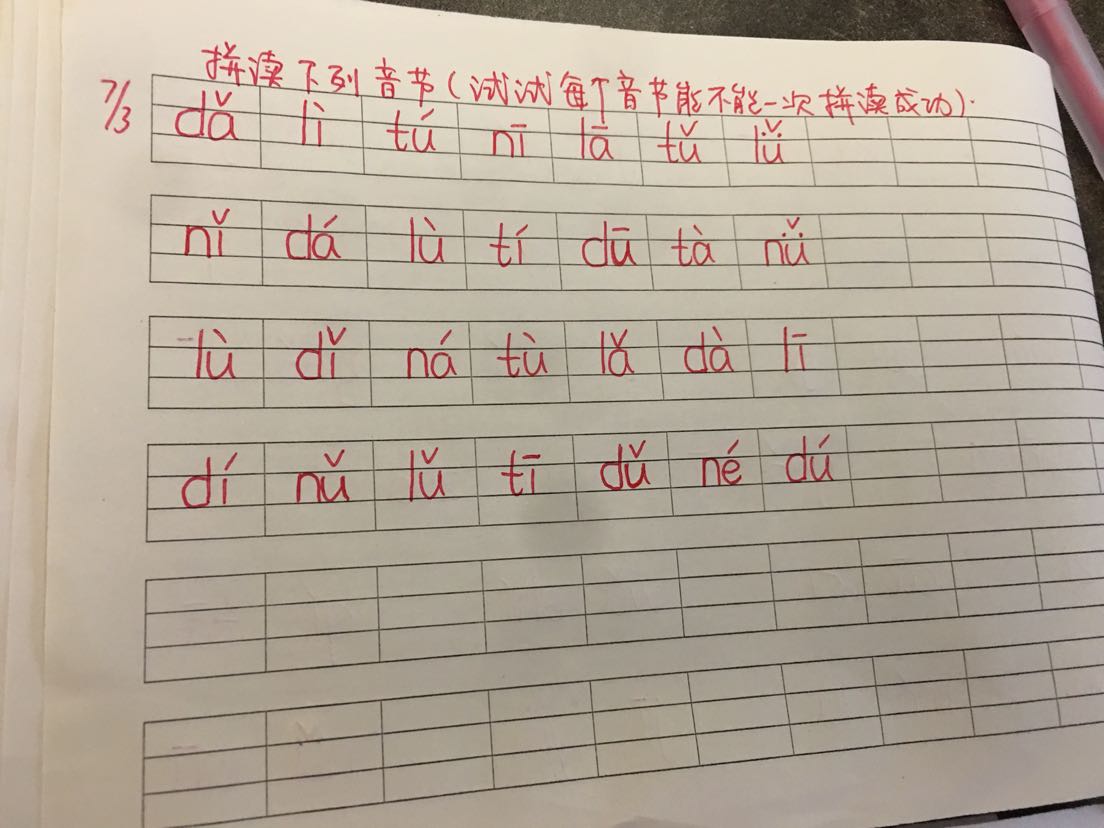 拼读下列音节(试试每个音节能不能一次拼读成功).
7/3
dǎ lì tú nī lā tǔ lǚ
nǐ dá lù tí dū tà nǚ
lù dǐ ná tù lǎ dà lī
dí nǔ lǔ tī dǔ né dú